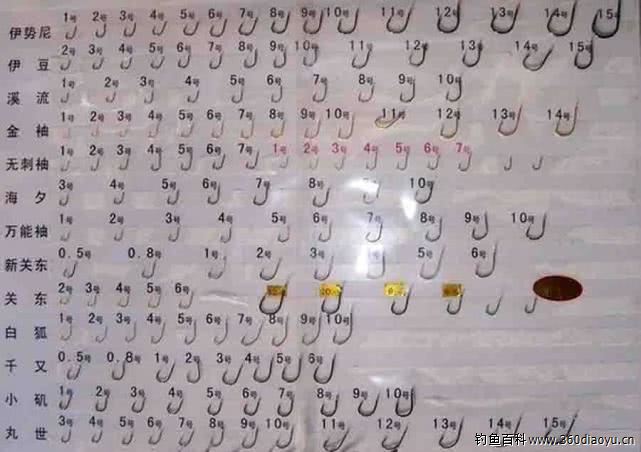 伊势尼 1号 2号 3号 4号 5号 6号 7号 8号 9号 10号 11号 12号 13号 14号 15号
伊豆 2号 3号 4号 5号 6号 7号 8号 9号 10号 11号 12号 13号 14号 15号
溪流 1号 2号 3号 4号 5号 6号 7号 8号 9号 10号
金袖 1号 2号 3号 4号 5号 6号 7号 8号 9号 10号 11号 12号 13号 14号
无刺袖 1号 2号 3号 4号 5号 6号 7号 1号 2号 3号 4号 5号 6号 7号
海夕 3号 4号 5号 6号 7号 8号 9号 10号
万能袖 1号 2号 3号 4号 5号 6号 7号 8号 9号 10号
新关东 0.5号 0.8号 1号 2号 3号 4号 5号 6号
关东 2号 3号 4号 5号 6号
白狐 1号 2号 3号 4号 5号 6号 7号 8号 9号 10号
千又 0.5号 0.8号 1号 2号 3号 4号 5号 6号
小矶 1号 2号 3号 4号 5号 6号 7号 8号 9号 10号
丸世 3号 4号 5号 6号 7号 8号 9号 10号 11号 12号 13号 14号 15号
钓鱼百科 www.360diaoyu.cn